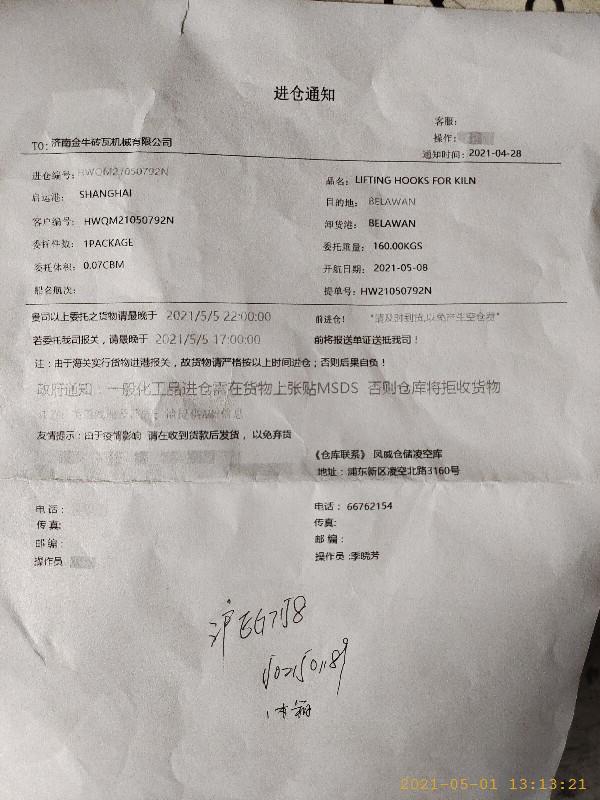 进仓通知
客服:
操作:
TO: 济南金牛砖瓦机械有限公司
通知时间: 2021-04-28
进仓编号: HWQM21050792N
品名: LIFTING HOOKS FOR KILN
启运港: SHANGHAI
目的地: BELAWAN
客户编号: HWQM21050792N
卸货港: BELAWAN
委托件数: 1PACKAGE
委托重量: 160.00KGS
委托体积: 0.07CBM
开航日期: 2021-05-08
船名航次:
提单号: HW21050792N
贵司以上委托之货物请最晚于 2021/5/5 22:00:00 前进仓! *请及时到货,以免产生空仓费*
若委托我司报关，请最晚于 2021/5/5 17:00:00 前将报送单证送抵我司！
注：由于海关实行货物进港报关，故货物请严格按以上时间进仓；否则后果自负！
政府通知：一般化工品进仓需在货物上张贴MSDS 否则仓库将拒收货物
友情提示：由于疫情影响 请在收到货款后发货，以免弃货
《仓库联系》 凤威仓储凌空库
地址：浦东新区凌空北路3160号
电话：
电话： 66762154
传真:
传真:
邮编：
邮编：
操作员
操作员:季晓芳
2021-05-01 13:13:21